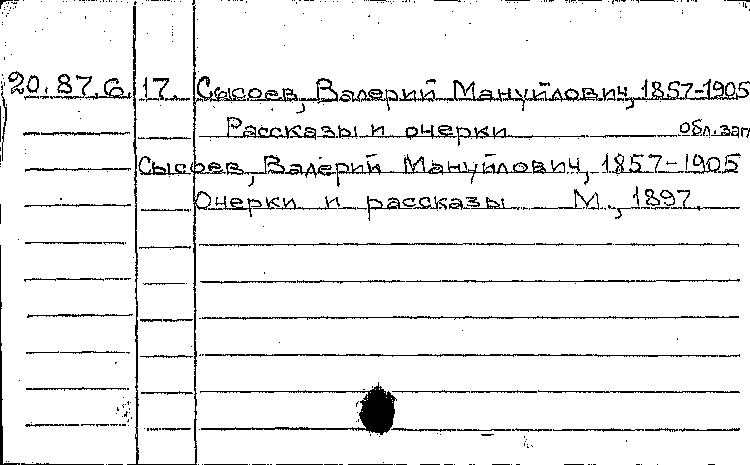 20.87.6.17. Сысоев, Валерий Мануйлович, 1857-1905
Рассказы и очерки обл.зап
Сысоев, Валерий Мануйлович, 1857-1905
Очерки и рассказы М., 1897.